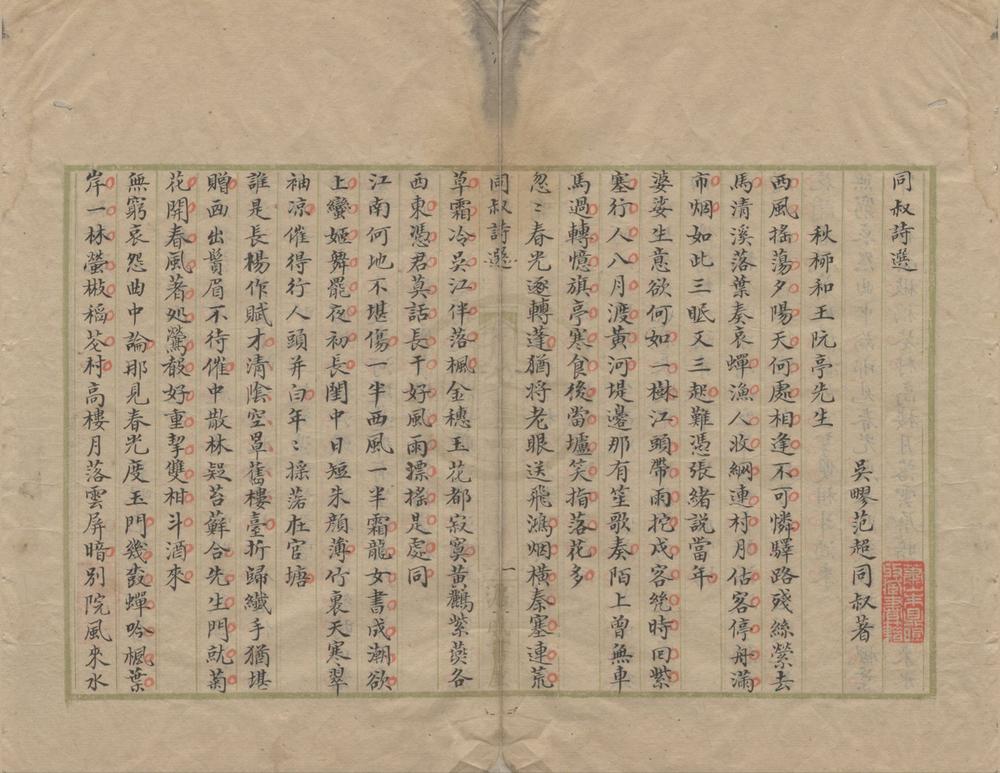 同叔詩選
吳郡范超同叔著
秋柳和王阮亭先生
西風搖蕩夕陽天何處相逢不可憐驛路殘絲縈去
馬清溪落葉奏哀蟬漁人收網連村月估客停舟滿
市烟如此三眠又三起難憑張緒說當年
婆娑生意欲何如一樹江頭帶雨挓戍客絶時回紫
塞行人八月渡黃河堤邊那有笙歌奏陌上曾無車
馬過轉憶旗亭寒食後當壚笑指落花多
忽〻春光逐轉蓬猶將老眼送飛鴻烟橫秦塞連荒
同叔詩選
一
草霜冷吳江伴落楓金穗玉花都寂寞黃鸝紫燕各
西東憑君莫話長干好風雨漂搖是處同
江南何地不堪傷一半西風一半霜龍女書成潮欲
上蠻姬舞罷夜初長閨中日短朱顔薄竹裏天寒翠
袖凉催得行人頭并白年〻採蕖在官塘
誰是長楊作賦才清陰空罩舊樓臺折歸纎手猶堪
贈画出鬢眉不待催中散林踈苔蘚合先生門就菊
花開春風著処鶯聲好重挈雙柑斗酒來
無窮哀怨曲中論那見春光度玉門幾㪚蟬吟楓葉
岸一林螢㨨稻花村高樓月落雲屏暗別院風來水